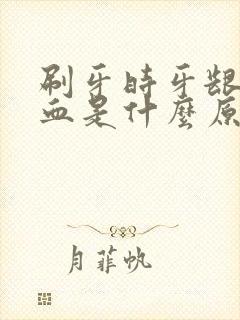 刷牙时牙龈
血是什麼原
月菲帆